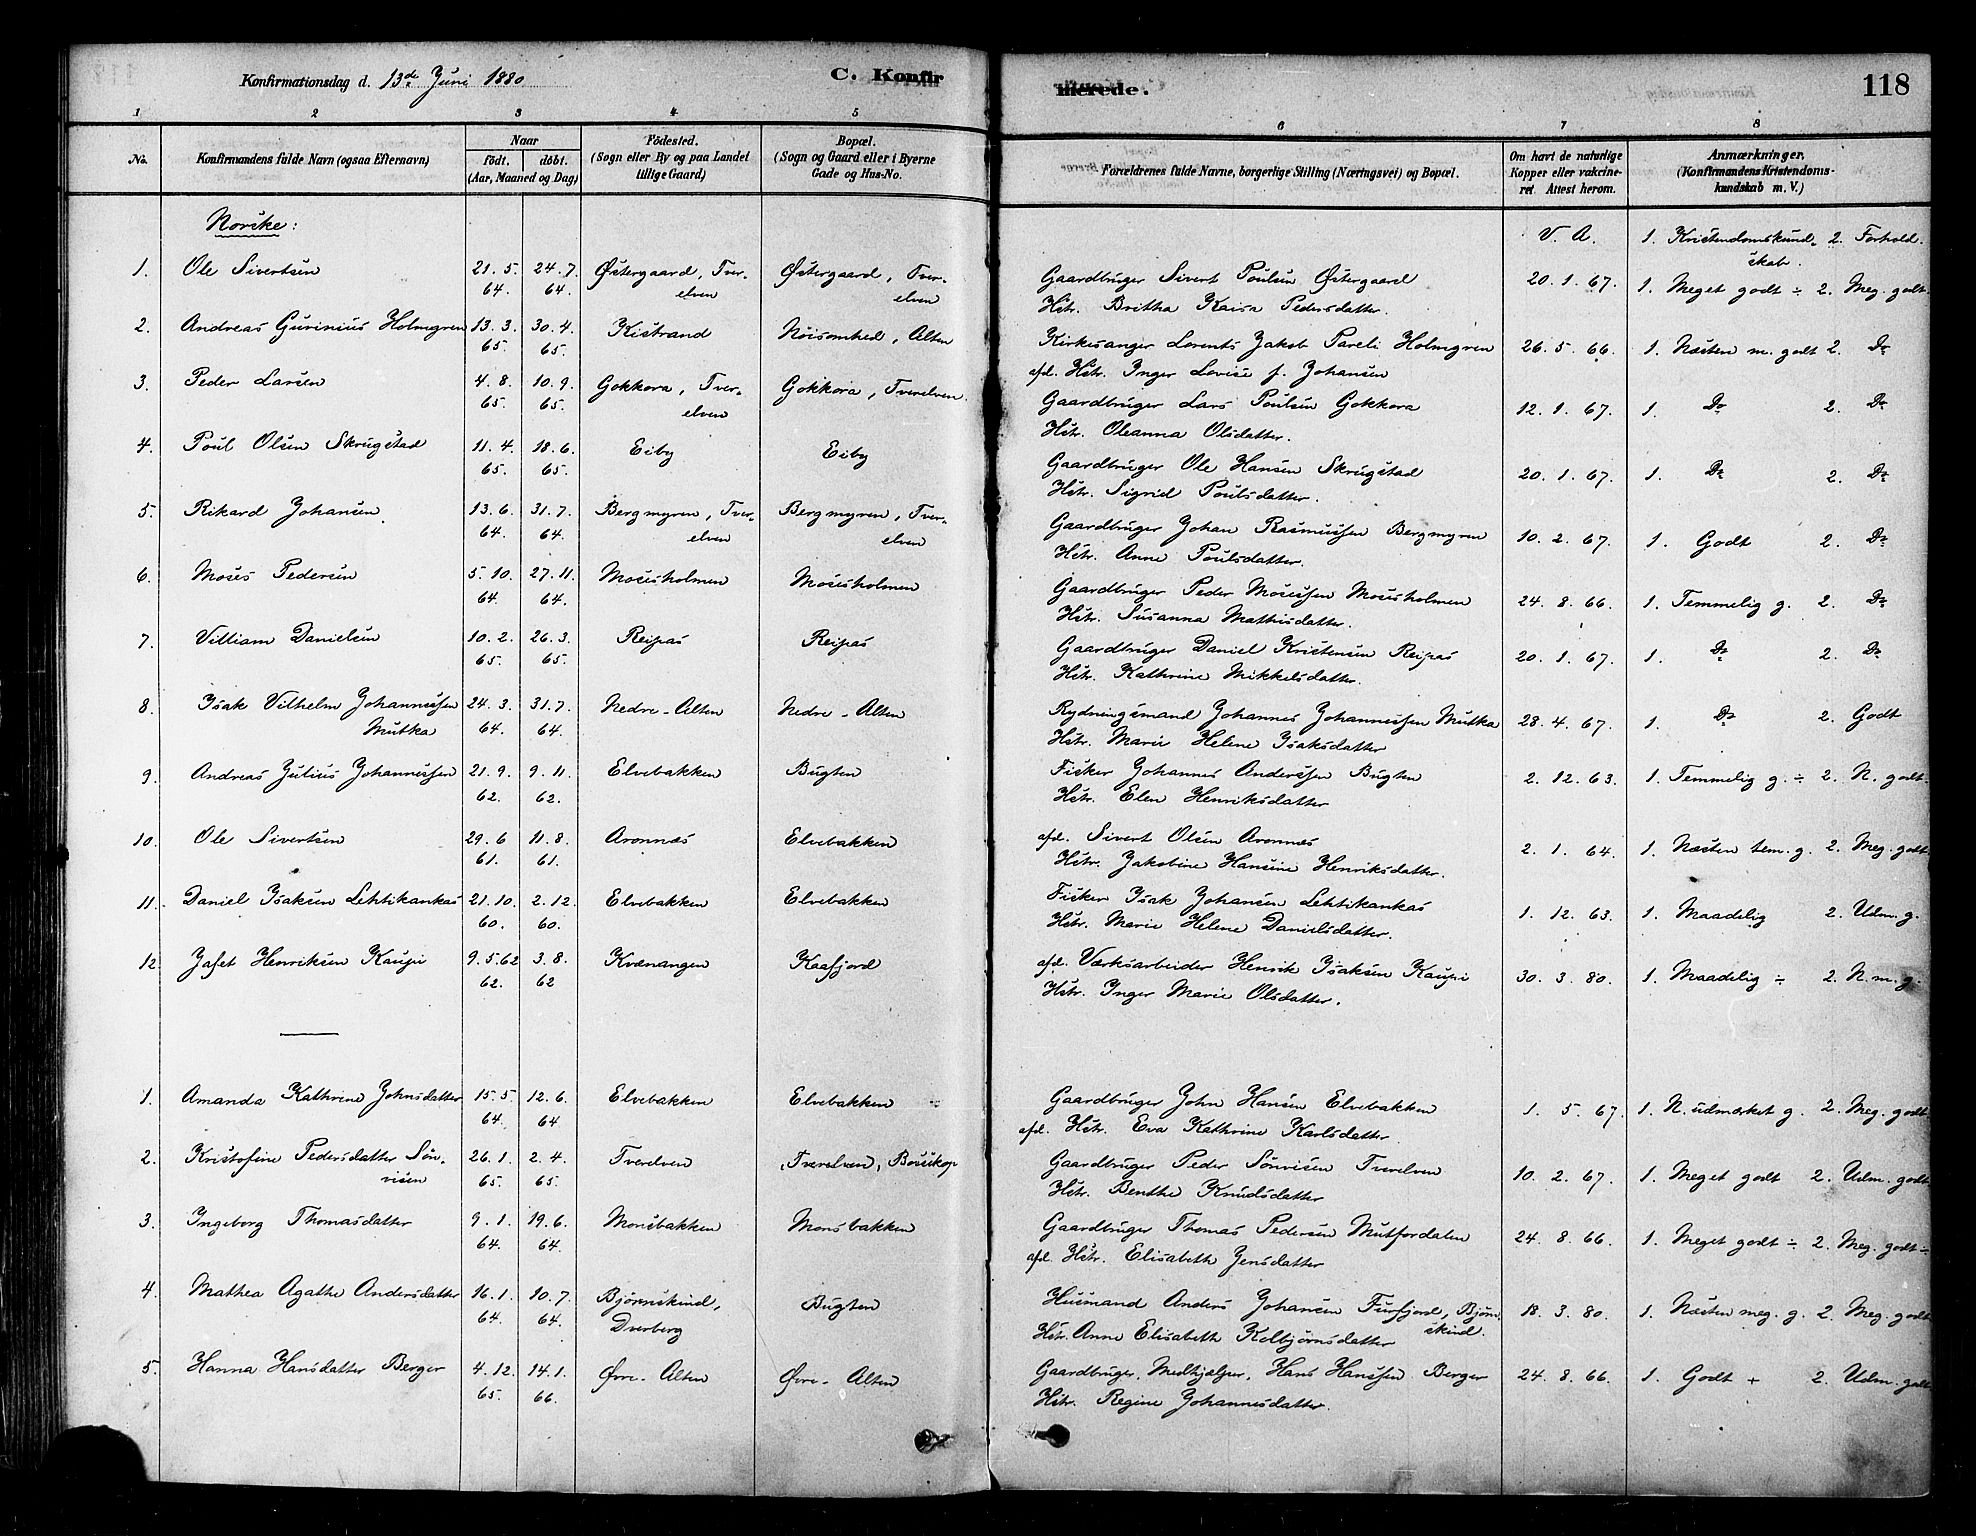 Konfirmationsdag d. 13de Juni 1880
C. Konfirmerede.
118
1 2 3 4 5 6 7 8
No.
Konfirmandens fulde Navn (ogsaa Efternavn)
Naar
födt. döbt.
(Aar, Maaned og Dag)
Födested.
(Sogn eller By og paa Landet
tillige Gaard)
Bopæl.
(Sogn og Gaard eller i Byerne
Gade og Hus-No.
Forældrenes fulde Navne, borgerlige Stilling (Næringsvei) og Bopæl.
Om havt de naturlige
Kopper eller vakcine-
ret. Attest herom.
Anmærkninger.
(Konfirmandens Kristendoms-
kundskab m. V.)
Norske:
V. A. 1. Kristendomskund- 2. Forhold.
skab.
1. Ole Sivertsen 21. 5. 24. 7. Østergaard, Tver- Østergaard, Tver- Gaardbruger Sivert Poulsen Østergaard 20. 1. 67. 1. Meget godt ÷ 2. Meg. godt.
64. 64. elven elven Hstr. Britha Kaisa Pedersdatter.
2. Andreas Gurinius Holmgren 13. 3. 30. 4. Kistrand Nöisomhed, Alten Kirkesanger Lorents Jakob Pareli Holmgren 26. 5. 66. 1. Næsten m. godt 2. Do
65. 65. afd. Hstr. Inger Lovise f. Johansen
3. Peder Larsen 4. 8. 10. 9. Gokkora, Tver- Gokkora, Tverelven. Gaardbruger Lars Poulsen Gokkora 12. 1. 67. 1. Do 2. Do
65. 65. elven Hstr. Oleanna Olsdatter.
4. Poul Olsen Skrugstad 11. 4. 18. 6. Eiby Eiby Gaardbruger Ole Hansen Skrugstad 20. 1. 67. 1. Do 2. Do
65. 65. Hstr. Sigrid Poulsdatter.
5. Rikard Johansen 13. 6. 31. 7. Bergmyren, Tver- Bergmyren, Tver- Gaardbruger Johan Rasmussen Bergmyren 10. 2. 67. 1. Godt 2. Do
64. 64. elven elven Hstr. Anne Poulsdatter.
6. Moses Pedersen 5. 10. 27. 11. Mosesholmen Mosesholmen Gaardbruger Peder Mosessen Mosesholmen 24. 8. 66. 1. Temmelig g. 2. Do
64. 64. Hstr. Susanna Mathisdatter.
7. Villiam Danielsen 10. 2. 26. 3. Reipas Reipas Gaardbruger Daniel Kristensen Reipas 20. 1. 67. 1. Do 2. Do
65. 65. Hstr. Kathrine Mikkelsdatter.
8. Isak Vilhelm Johannessen 24. 3. 31. 7. Nedre-Alten Nedre-Alten Rydningsmand Johannes Johannessen Mutka 28. 4. 67. 1. Do 2. Godt
Mutka 64. 64. Hstr. Marie Helene Isaksdatter
9. Andreas Julius Johannessen 21. 9. 9. 11. Elvebakken Bugten Fisker Johannes Anderssen Bugten 2. 12. 63. 1. Temmelig g. ÷ 2. N. godt.
62. 62. Hstr. Elen Henriksdatter
10. Ole Sivertsen 29. 6 11. 8. Aronnæs Elvebakken afd. Sivert Olsen Aronnæs 2. 1. 64. 1. Næsten tem. g. 2. Meg. godt
61. 61. Hstr. Jakobine Hansine Henriksdatter.
11. Daniel Isaksen Lehtikankas 21. 10. 2. 12. Elvebakken Elvebakken Fisker Isak Johansen Lehtikankas 1. 12. 63. 1. Maadelig 2. Udm. g.
60. 60. Hstr. Marie Helene Danielsdatter.
12. Jafet Henriksen Kaupi 9. 5. 62 3. 8. Kvænangen Kaafjord afd. Værksarbeider Henrik Isaksen Kaupi 30. 3. 80. 1. Maadelig ÷ 2. N. m. g.
62. 62 Hstr. Inger Marie Olsdatter.
1. Amanda Kathrine Johnsdatter 15. 5. 12. 6. Elvebakken Elvebakken Gaardbruger John Hansen Elvebakken 1. 5. 67. 1. N. udmærket g. 2. Meg. godt.
64. 64 afd. Hstr. Eva Kathrine Karlsdatter.
2. Kristofine Pedersdatter Sön- 26. 1. 2. 4. Tverelven Tverelven, Bossekop Gaardbruger Peder Sönvisen Tverelven 10. 2. 67. 1. Meget godt 2. Udm. godt
visen 65. 65. Hstr. Benthe Knudsdatter
3. Ingeborg Thomasdatter 9. 1. 19. 6. Monsbakken Monsbakken Gaardbruger Thomas Pedersen Mutfordalen 24. 8. 66. 1. Meget godt ÷ 2. Meg. godt ÷
64. 64. afd. Hstr. Elisabeth Jensdatter
4. Mathea Agathe Andersdatter 16. 1. 10. 7. Björnskind, Bugten Husmand Anders Johansen Furfjord, Björn- 18. 3. 80. 1. Næsten meg. g. 2. Meg. godt
64. 64. Dverberg Hstr. Anne Elisabeth Kolbjörnsdatter skind.
5. Hanna Hansdatter Berger 4. 12. 14. 1. Øvre-Alten Øvre-Alten Gaardbruger, Medhjælper, Hans Hanssen Berger 24. 8. 66. 1. Godt + 2. Udm. godt
65. 66. Hstr. Regine Johannesdatter.